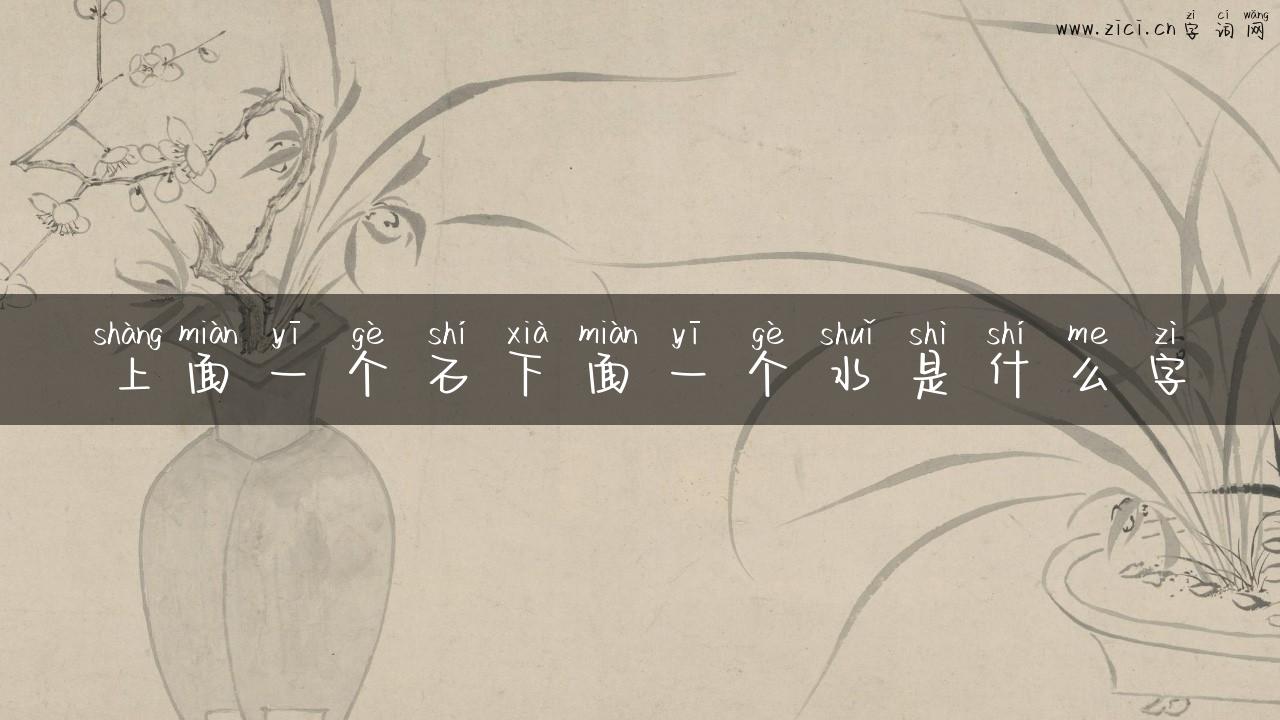 zì cí wǎng
www.zici.cn字词网
shàng miàn yī gè shí xià miàn yī gè shuǐ shì shí me zì
上面一个石下面一个水是什么字